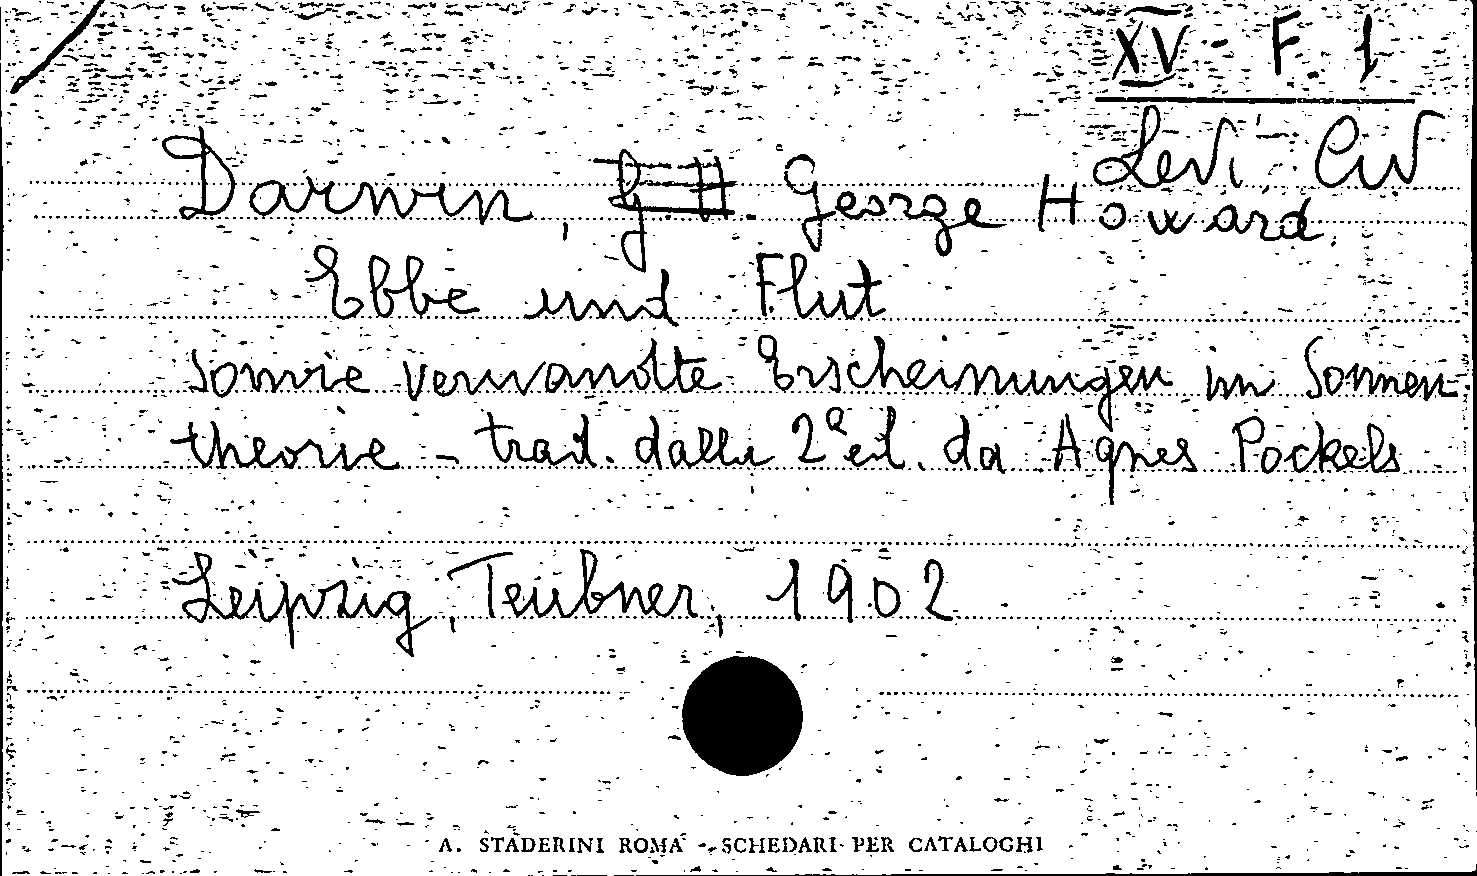 XV - F. 1
Levi-Civ
Darwin, G. H. George Howard
Ebbe und Flut
sowie verwandte Erscheinungen im Sonnen-
theorie - trad. dalla 2ª ed. da Agnes Pockels
Leipzig, Teubner, 1902
A. STADERINI ROMA - SCHEDARI PER CATALOGHI